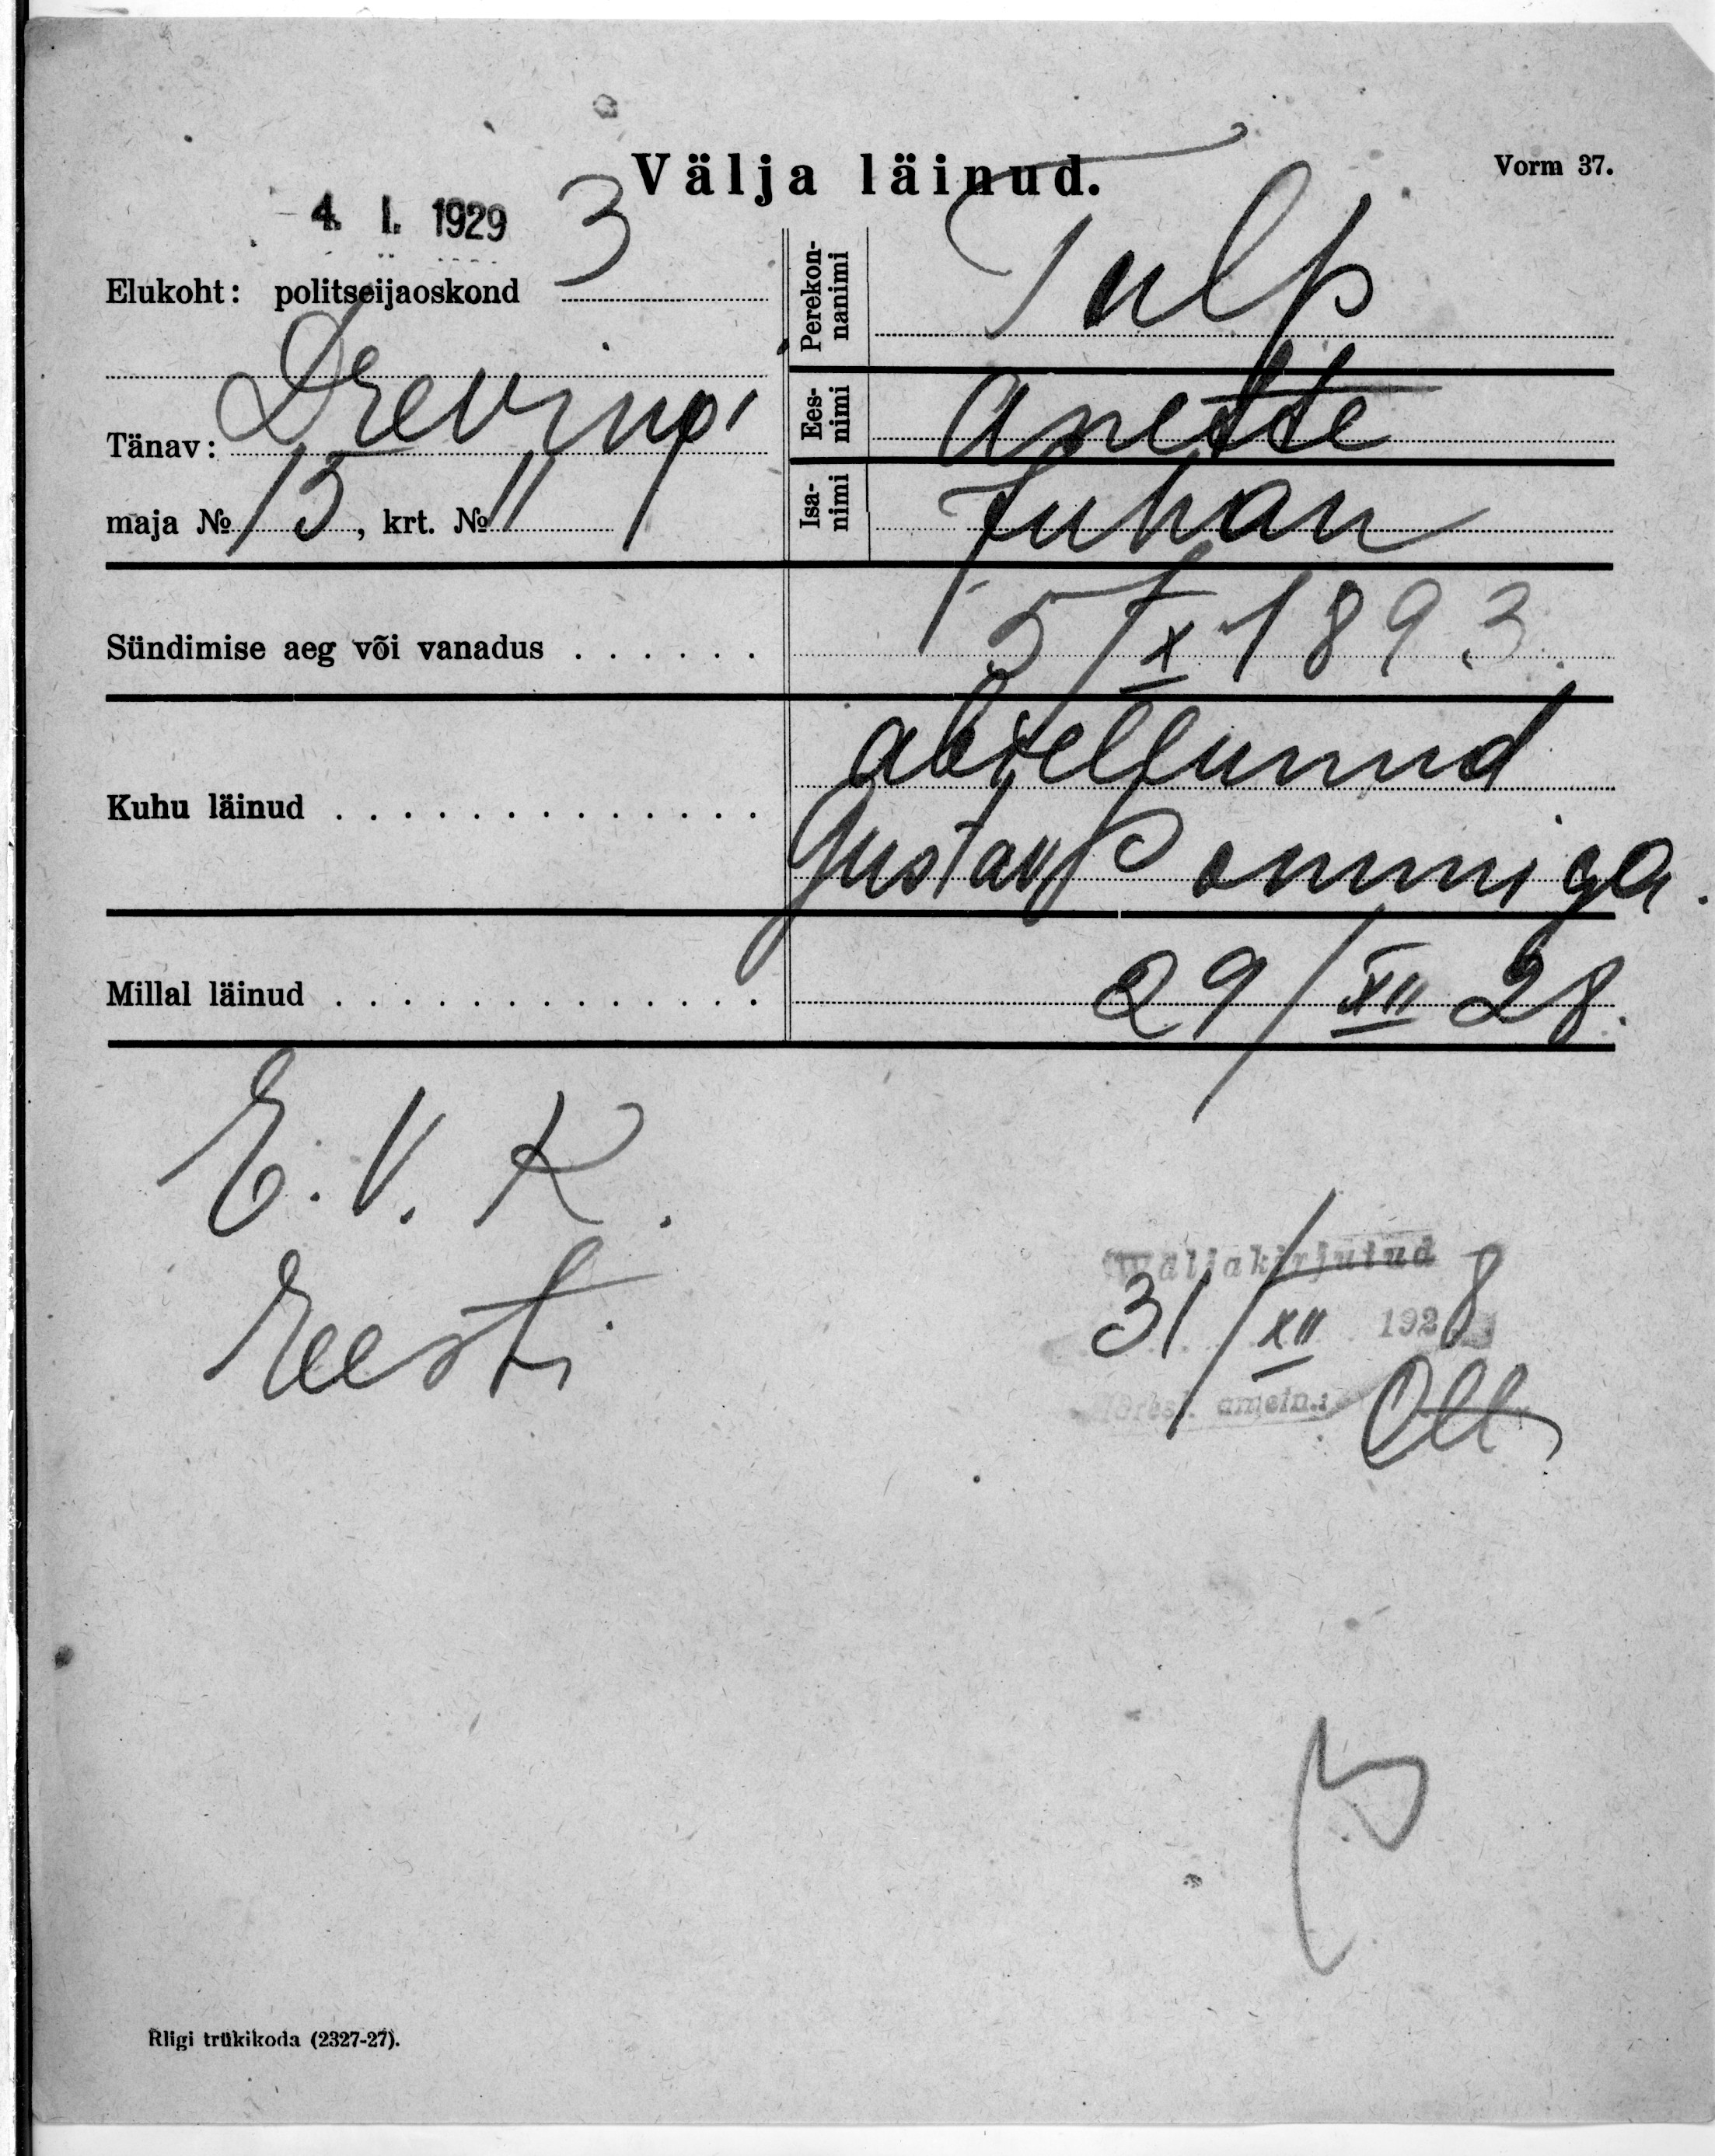 Välja läinud.
Vorm 37.
4. I. 1929
Elukoht: politseijaoskond 3
Tänav: Dreving'i
maja № 15, krt. № 11
Perekon-
nanimi Tulp
Ees-
nimi Anette
Isa-
nimi Juhan
Sündimise aeg või vanadus . . . . . . 5/X 1893.
Kuhu läinud . . . . . . . . . . . . . . abiellunud
Gustav Pommiga.
Millal läinud . . . . . . . . . . . . . . 29/XII 28.
E. V. K.
Eesti
Wäljakirjutud
31/XII 1928
Ott
Riigi trükikoda (2327-27).